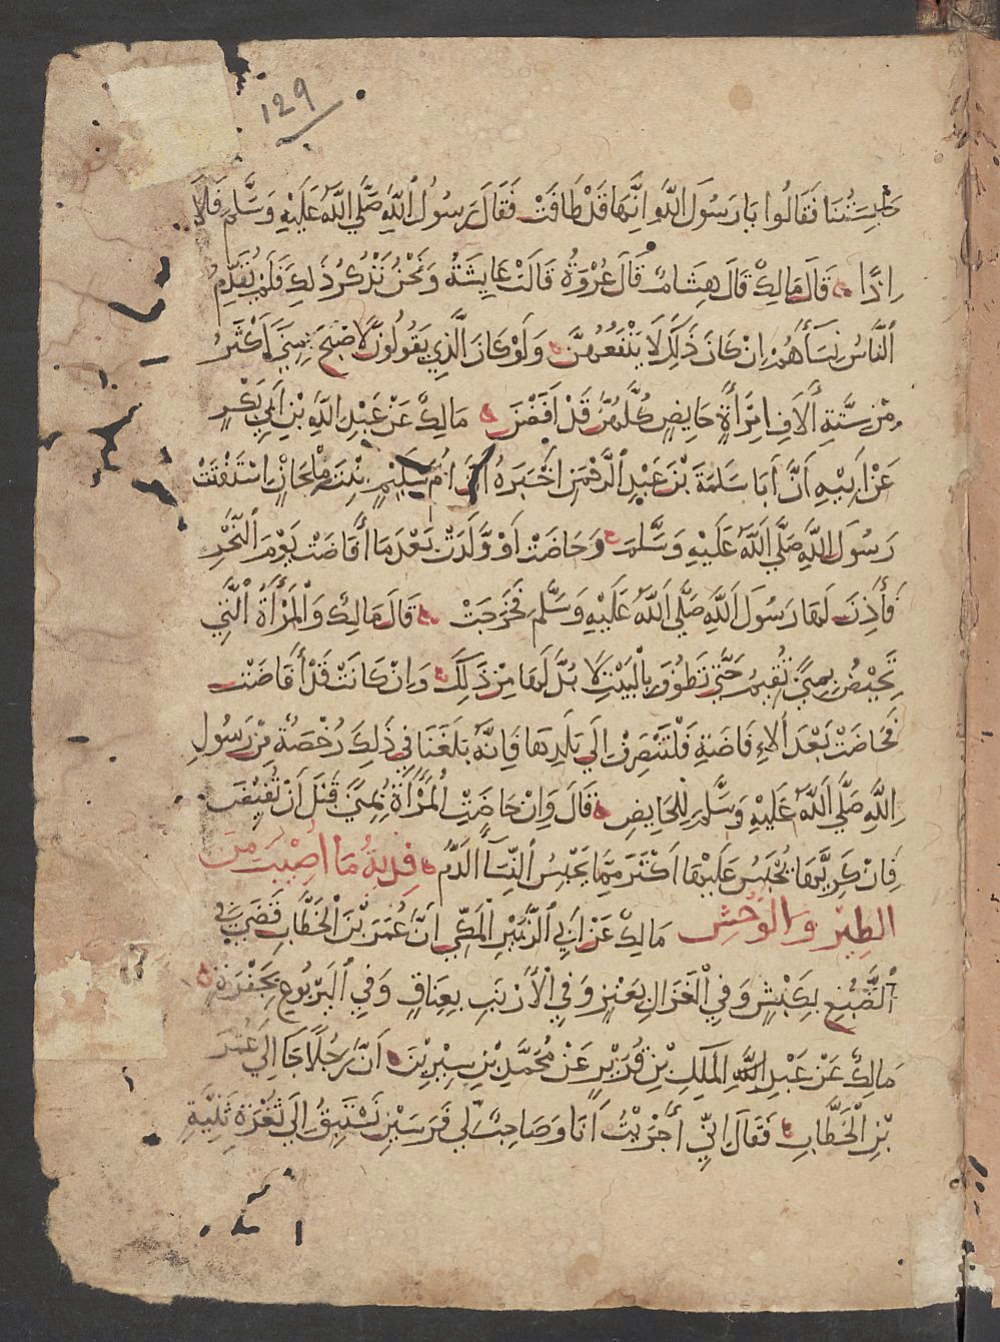 129
حَابِسَتُنَا فَقَالُوا يَا رَسُولَ اللَّهِ اِنَّهَا قَدْ طَافَتْ فَقَالَ رَسُولُ اللهِ صَلَّي اللَّهُ عَلَيْهِ وَسَلَّمَ فَلَا
اِذًا قَالَ مَالِكٌ قَالَ هِشَامٌ قَالَ عُرْوَةُ قَالَتْ عَايِشَةُ وَنَحْنُ نَذْكُرُ ذَلِكَ فَلَمْ يُقَدِّمُ
النَّاسُ نِسَأَهُمْ اِنْ كَانَ ذَلِكَ لَا يَنْفَعُهُنَّ وَلَوْ كَانَ الَّذِي يَقُولُونَ لَاصْبَحَ بِمِنَيً اَكْثَرُ
مِنْ سِتَّةِ أَلَافِ امْرَأَةٍ حَايِضٍ كُلَّهُنَّ قَدْ اَفَضْنَ مَالِكٌ عَنْ عَبْدِ اللَّهِ بْنِ اَبِي بَكْرٍ
عَنْ اَبِيْهِ اَنَّ اَبَا سَلَمَةَ بْنَ عَبْدِ الرَّحْمَنِ اَخْبَرَهُ اَنَّ اُمَّ سُلَيْمٍ بِنْتَ مِلْحَانَ اسْتَفْتَتْ
رَسُولَ اللَّهِ صَلَّي اللَّهُ عَلَيْهِ وَسَلَّمَ وَحَاضَتْ اَوْ وَلَدَتْ بَعْدَمَا أَفَاضَتْ يَوْمَ النَّحْرِ
فَأَذِنَ لَهَا رَسُولَ اللَّهِ صَلَّي اللَّهُ عَلَيْهِ وَسَلَّمَ فَخَرَجَتْ قَالَ مَالِكٌ وَالْمَرْأَةُ الَّتِي
تَحِيْضُ بِمِنَيً تُقِيمُ حَتَّي تَطُوْفَ بِالْبَيْتِ لَا بُدَّ لَهَا مِنْ ذَلِكَ وَاِنْ كَانَتْ قَدْ أَفَاضَتْ
فَحَاضَتْ بَعْدَ الاِفَاضَةِ فَلْتَنْصَرِفْ اِلَي بَلَدِهَا فَاِنَّهُ بَلَغَنَا فِي ذَلِكَ رُخْصَةٌ مِنْ رَسُولِ
اللَّهِ صَلَّي اللَّهُ عَلَيْهِ وَسَلَّمَ لِلْحَايِضِ قَالَ وَاِنْ حَاضَتِ الْمَرْأَةُ بِمِنَيً قَبْلَ اَنْ تُفِيْضَ
فَاِنَّ كَرِيَّهَا يُحْبَسُ عَلَيْهَا اَكْثَرَ مِمَّا يَحْبِسُ النِّسَأَ الدَّمُ فِدْيَةُ مَا اُصِيْبَ مِنَ
الطَيْرِ وَالوَحْشِ مَالِكٌ عَنْ اَبِي الزُّبَيْرِ الْمَكِّي اَنَّ عُمَرَ بْنَ الْخَطَّابِ قَضَي فِي
الضَّبُعِ بِكَبْشٍ وَفِي الْغَزَالِ بِعَنْزٍ وَفِي الْأَرْنَبِ بِعِنَاقٍ وَفِي الْيَرْبُوعِ بِجَفْرَةٍ
مَالِكٌ عَنْ عَبْدِ اللَّهِ الْمَلِكِ بْنِ قُرَيْرٍ عَنْ مُحَمَّدِ بْنِ سِيْرِيْنَ اَنَّ رَجُلًا جَا اِلَي عُمَرَ
بْنِ الْخَطَّابِ فَقَالَ اِنِّي أَجْرَيْتُ اَنَا وَصَاحِبٌ لِي فَرَسَيْنِ نَسْتَبِقُ اِلَي ثُغْرَةِ ثَنِيَّةٍ